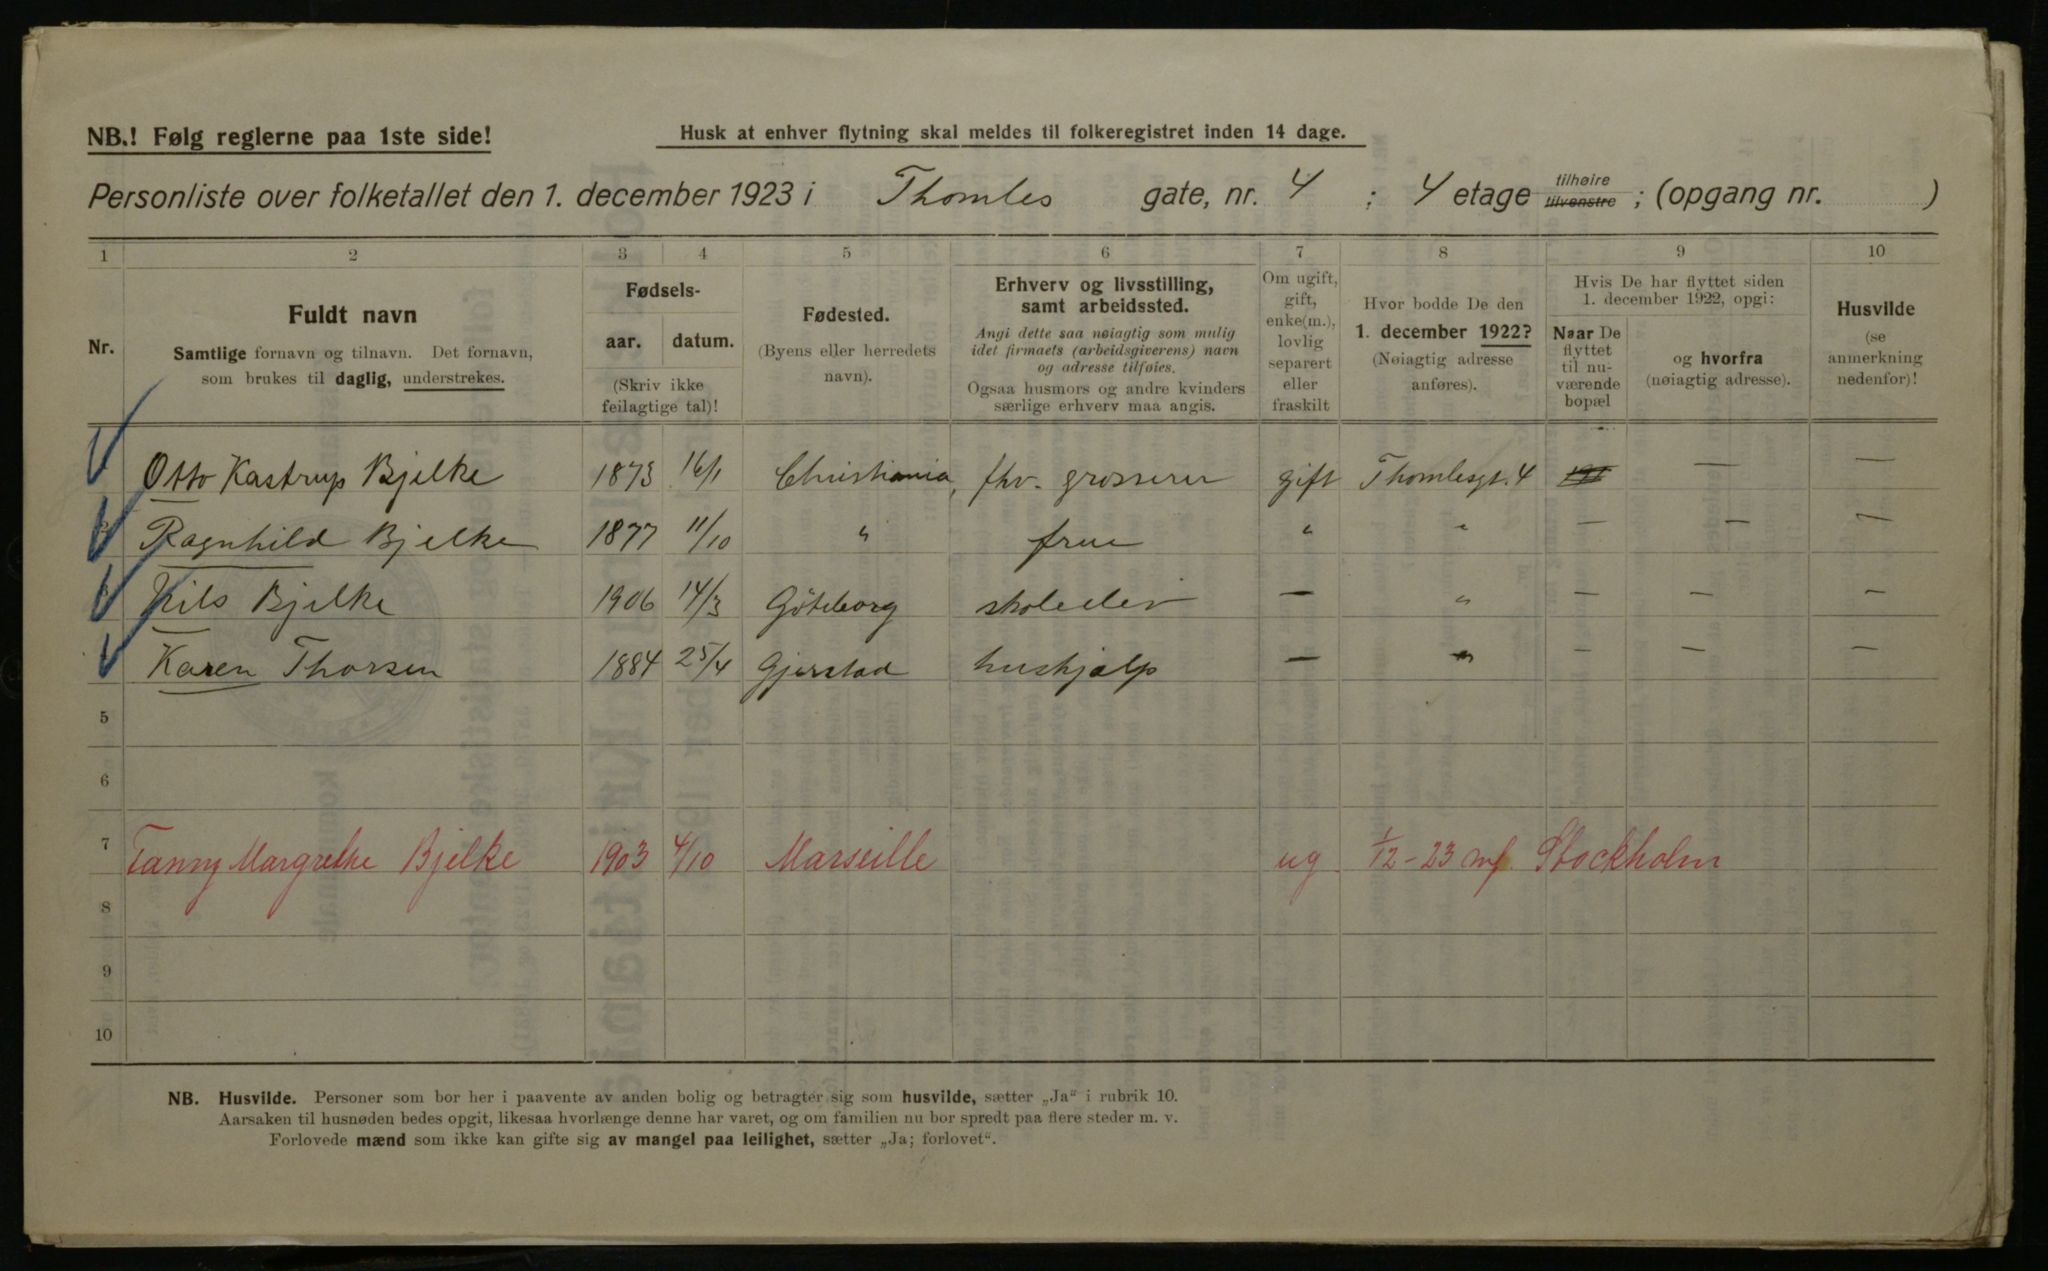 NB.! Følg reglerne paa 1ste side!
Husk at enhver flytning skal meldes til folkeregistret inden 14 dage.
Personliste over folketallet den 1. december 1923 i Thomles gate, nr. 4 ; 4 etage tilhøire tilvenstre ; (opgang nr. )
1 2 3 4 5 6 7 8 9 10
Nr.
Fuldt navn
Samtlige fornavn og tilnavn. Det fornavn,
som brukes til daglig, understrekes.
Fødsels-
aar. datum.
(Skriv ikke
feilagtige tal)!
Fødested.
(Byens eller herredets
navn).
Erhverv og livsstilling,
samt arbeidssted.
Angi dette saa nøiagtig som mulig
idet firmaets (arbeidsgiverens) navn
og adresse tilføies.
Ogsaa husmors og andre kvinders
særlige erhverv maa angis.
Om ugift,
gift,
enke(m.),
lovlig
separert
eller
fraskilt
Hvor bodde De den
1. december 1922?
(Nøiagtig adresse
anføres).
Hvis De har flyttet siden
1. december 1922, opgi:
Naar De
flyttet
til nu-
værende
bopæl
og hvorfra
(nøiagtig adresse).
Husvilde
(se
anmerkning
nedenfor)!
Otto Kastrup Bjelke 1873 16/1 Christiania, fhv. grosserer gift Thomlesgt. 4 — —
Ragnhild Bjelke 1877 11/10 " frue " " — — —
Nils Bjelke 1906 14/3 Göteborg skoleelev — " — — —
Karen Thorsen 1884 25/4 Gjerstad hushjælp — " — — —
5
6
7 Fanny Margrethe Bjelke 1903 4/10 Marseille ug. 1/12-23 mf. Stockholm
8
9
10
NB. Husvilde. Personer som bor her i paavente av anden bolig og betragter sig som husvilde, sætter „Ja" i rubrik 10.
Aarsaken til husnøden bedes opgit, likesaa hvorlænge denne har varet, og om familien nu bor spredt paa flere steder m. v.
Forlovede mænd som ikke kan gifte sig av mangel paa leilighet, sætter „Ja; forlovet".